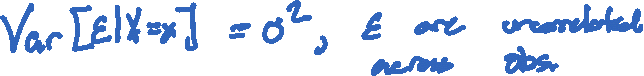 Var[ε|X=x] = σ², ε are uncorrelated
across obs.